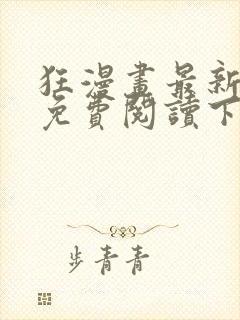 狂漫畫最新
免費閱讀下
步青青